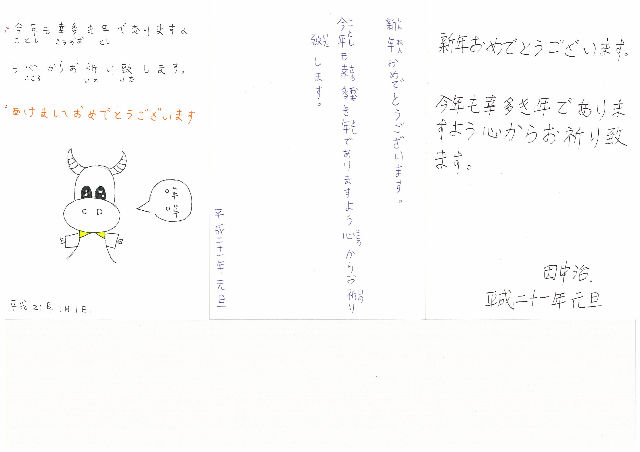 今年も幸多き年でありますよ
ことし こうおお とし
う心からお祈り致します。
こころ いの いた
あけましておめでとうございます
平成21年1月1日
新年おめでとうございます。
今年も幸多き年でありますよう心からお祈り
致します。
平成二十一年元旦
新年おめでとうございます。
今年も幸多き年でありま
すよう心からお祈り致
ます。
田中治
平成二十一年元旦